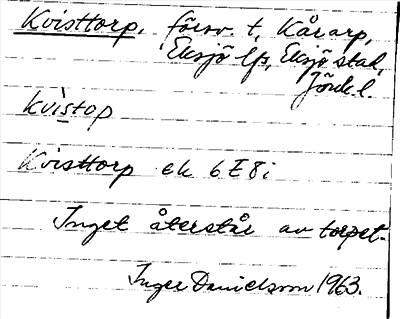 Kvisttorp, försv. t, Kårarp,
Eksjö lfs, Eksjö stad,
Jönk. l.
kvistop
Kvisttorp ek 6E8i
Inget återstår av torpet.
Inger Danielsson 1963.